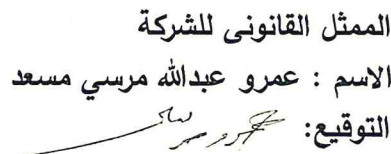 الممثل القانونى للشركة
الاسم : عمرو عبدالله مرسي مسعد
التوقيع: